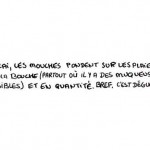 LES MOUCHES PONDENT SUR LES PLAIE
LA BOUCHE (PARTOUT OÙ IL Y A DES MUQUEUS
IBLES) ET EN QUANTITÉ. BREF, C'EST DÉGU